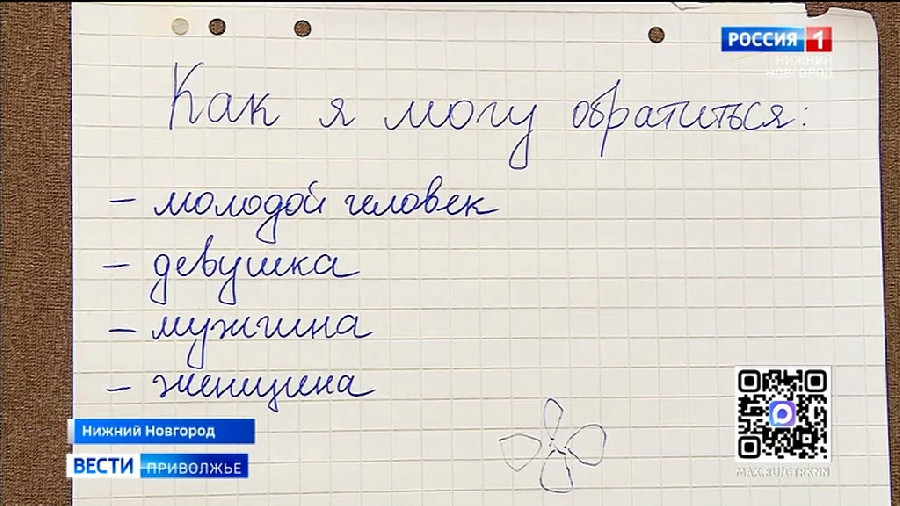 РОССИЯ 1
НИЖНИЙ
НОВГОРОД
Как я могу обратиться:
- молодой человек
- девушка
- мужчина
- женщина
Нижний Новгород
ВЕСТИ ПРИВОЛЖЬЕ
MAX.RU/GTRKNN